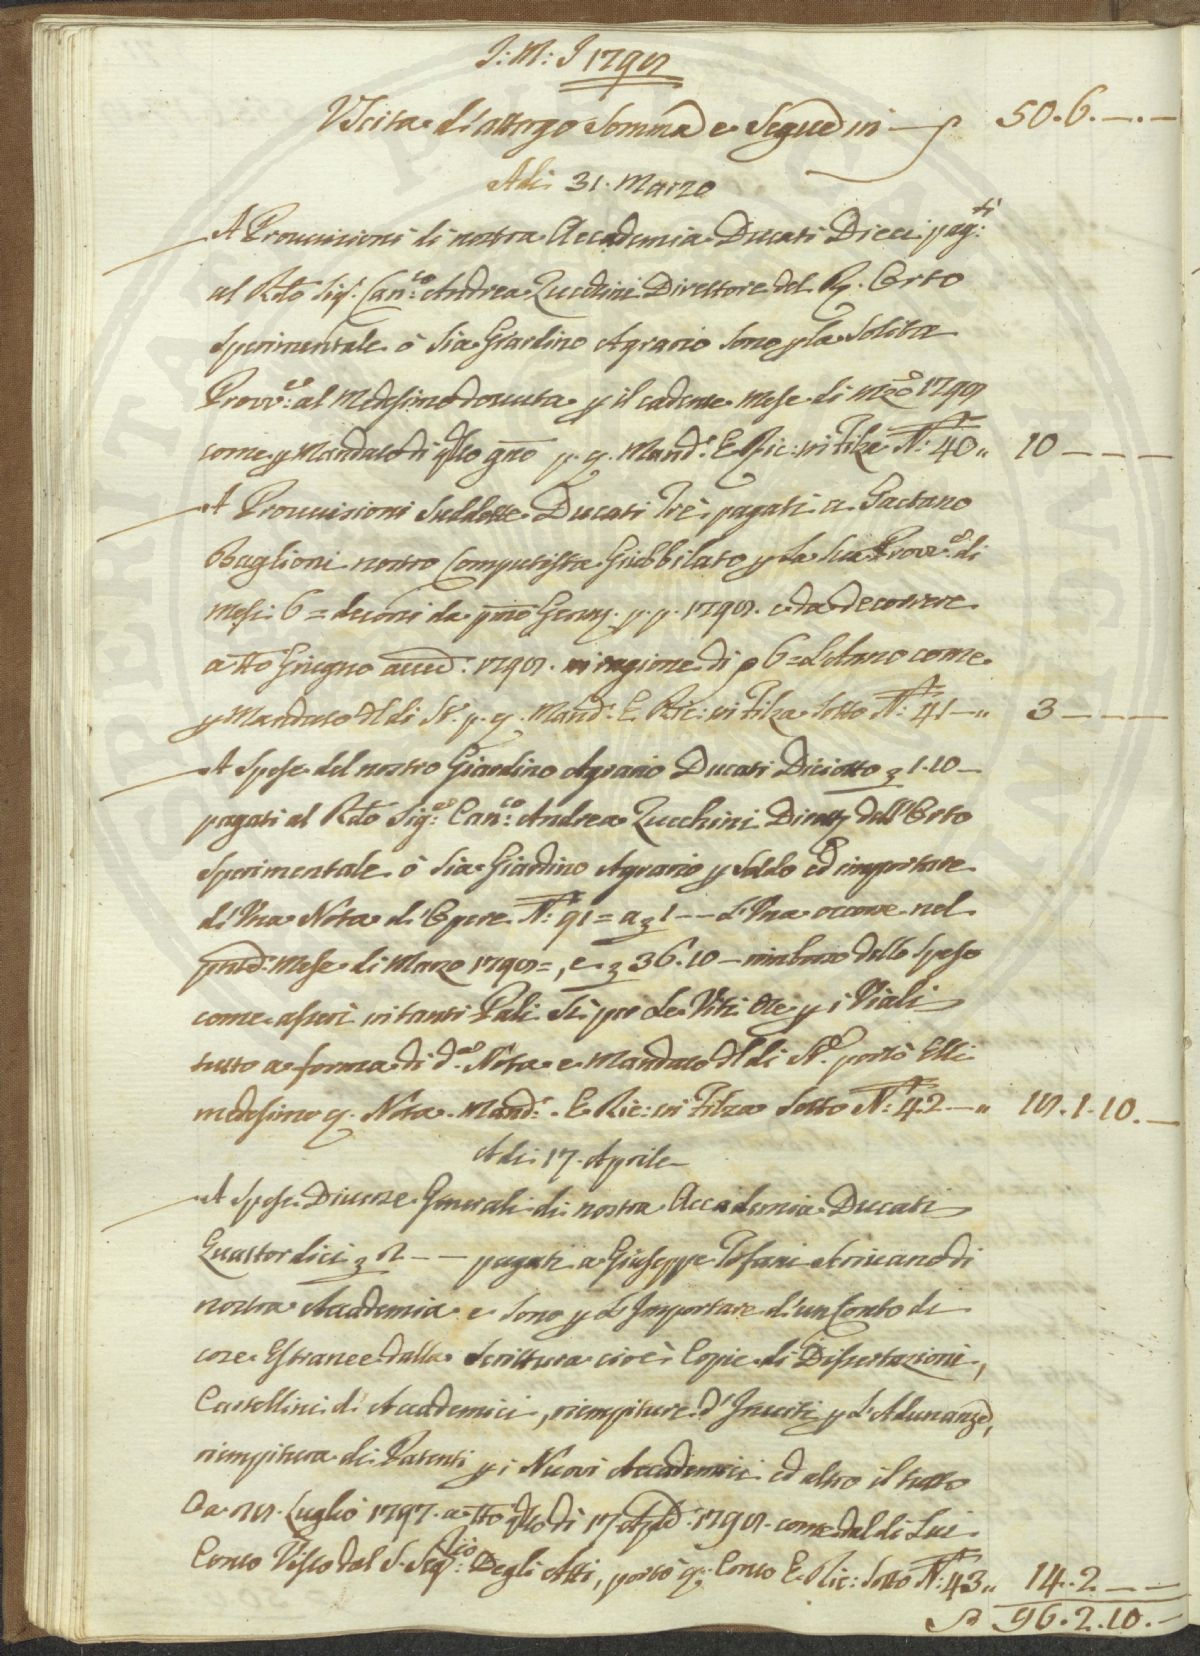 J: M: J 1798
Uscita di attergo Somma e Segue in — 50. 6. — . —
Adi 31. Marzo
A Provvisioni di nostra Accademia Ducati Dieci pag:ti
al Rdo Sig.r Can:co Andrea Zucchini Direttore del R. Orto
Sperimentale ò sia Giardino Agrario sono p la solita
Provv:e al Medesimo dovuta p il cadente Mese di Mzo 1798
come p Mandato di q̃sto gño p. q. Mand:o E Ric: in Filza N: 40 „ 10 — — —
A Provvisioni Suddette Ducati Trè pagati a Gaetano
Baglioni nostro Computista Giubbilato p la sua Provv:e di
Mesi 6 = decorsi da p̃mo Genn: p. p. 1798. e da decorrere
a tto Giugno avved: 1798. in ragione di 6 = L'Anno come
p Mandato dl di St: p. q. Mand:o E Ric: in Filza sotto N: 41 — „ 3 — — —
A Spese del nostro Giardino Agrario Ducati Diciotto 1. 10 —
pagati al Rdo Sig:e Can:co Andrea Zucchini Dirett dell'Orto
Sperimentale ò sia Giardino Agrario p saldo ed importare
di Una Nota di Opere N: 91 = a 1 — — L'Una occorse nel
pñtd: Mese di Marzo 1798 =, e 36. 10 — rimborso delle spese
come asserì in tanti Pali Sti per le Viti Ole p i Viali
tutto a forma di d:a Nota e Mandato dl di St:o portò Elli
medesimo q. Nota. Mand:o. E Ric: in Filza sotto N: 42 — „ 18. 1. 10. —
Adi 17. Aprile
A Spese Diverse Generali di nostra Accademia Ducati
Quattordici 2 — — pagati a Giuseppe Tofani Scrivano di
nostra Accademia e sono p L'Importare d'un Conto di
cose Estranee dalla Scrittura cioè Copie di Dissertazioni,
Cartellini di Accademici, riempiture d'Inviti p L'Adunanze,
riempitura di Patenti p i Nuovi Accademici ed altro il tutto
Da Luglio 1797. a tto q̃sto di 17 Aple 1798. come dal di Lui
Conto Visto dal S. Seg:rio Degli Atti, portò q: Conto E Ric: sotto N: 43 „ 14. 2 — —
96. 2. 10. —